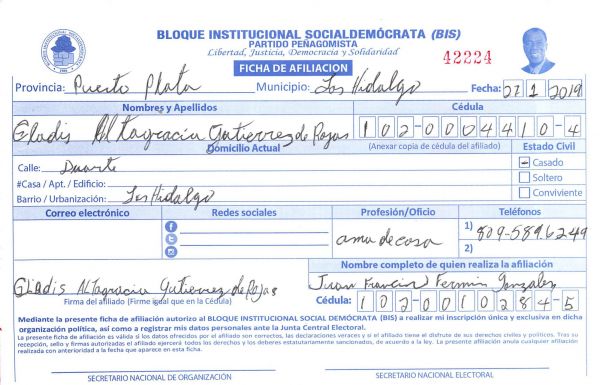 BLOQUE INSTITUCIONAL SOCIALDEMÓCRATA (BIS)
PARTIDO PEÑAGOMISTA
Libertad, Justicia, Democracia y Solidaridad
42224
FICHA DE AFILIACION
Provincia: Puerto Plata Municipio: Los Hidalgo Fecha: 27 1 2019
Nombres y Apellidos Cédula
Gladis Altagracia Gutierrez de Rojas 102-0004410-4
Domicilio Actual (Anexar copia de cédula del afiliado) Estado Civil
Calle: Duarte Casado
#Casa / Apt. / Edificio: Soltero
Barrio / Urbanización: Los Hidalgo Conviviente
Correo electrónico Redes sociales Profesión/Oficio Teléfonos
ama de casa 1) 809-589.6249
2)
Nombre completo de quien realiza la afiliación
Gladis Altagracia Gutierrez de Rojas Juan Francis Fermin Gonzalez
Firma del afiliado (Firme igual que en la Cédula) Cédula: 102-0010284-5
Mediante la presente ficha de afiliación autorizo al BLOQUE INSTITUCIONAL SOCIAL DEMÓCRATA (BIS) a realizar mi inscripción única y exclusiva en dicha
organización política, así como a registrar mis datos personales ante la Junta Central Electoral.
La presente ficha de afiliación es válida si los datos ofrecidos por el afiliado son correctos, las declaraciones veraces y si el afiliado tiene el disfrute de sus derechos civiles y políticos. Tras su
recepción, sello y firmas autorizadas el afiliado ejercerá todos los derechos y los deberes estatutariamente sancionados, de acuerdo a la ley. La presente afiliación anula cualquier afiliación
realizada con anterioridad a la fecha que aparece en esta ficha.
SECRETARIO NACIONAL DE ORGANIZACIÓN SECRETARIO NACIONAL ELECTORAL